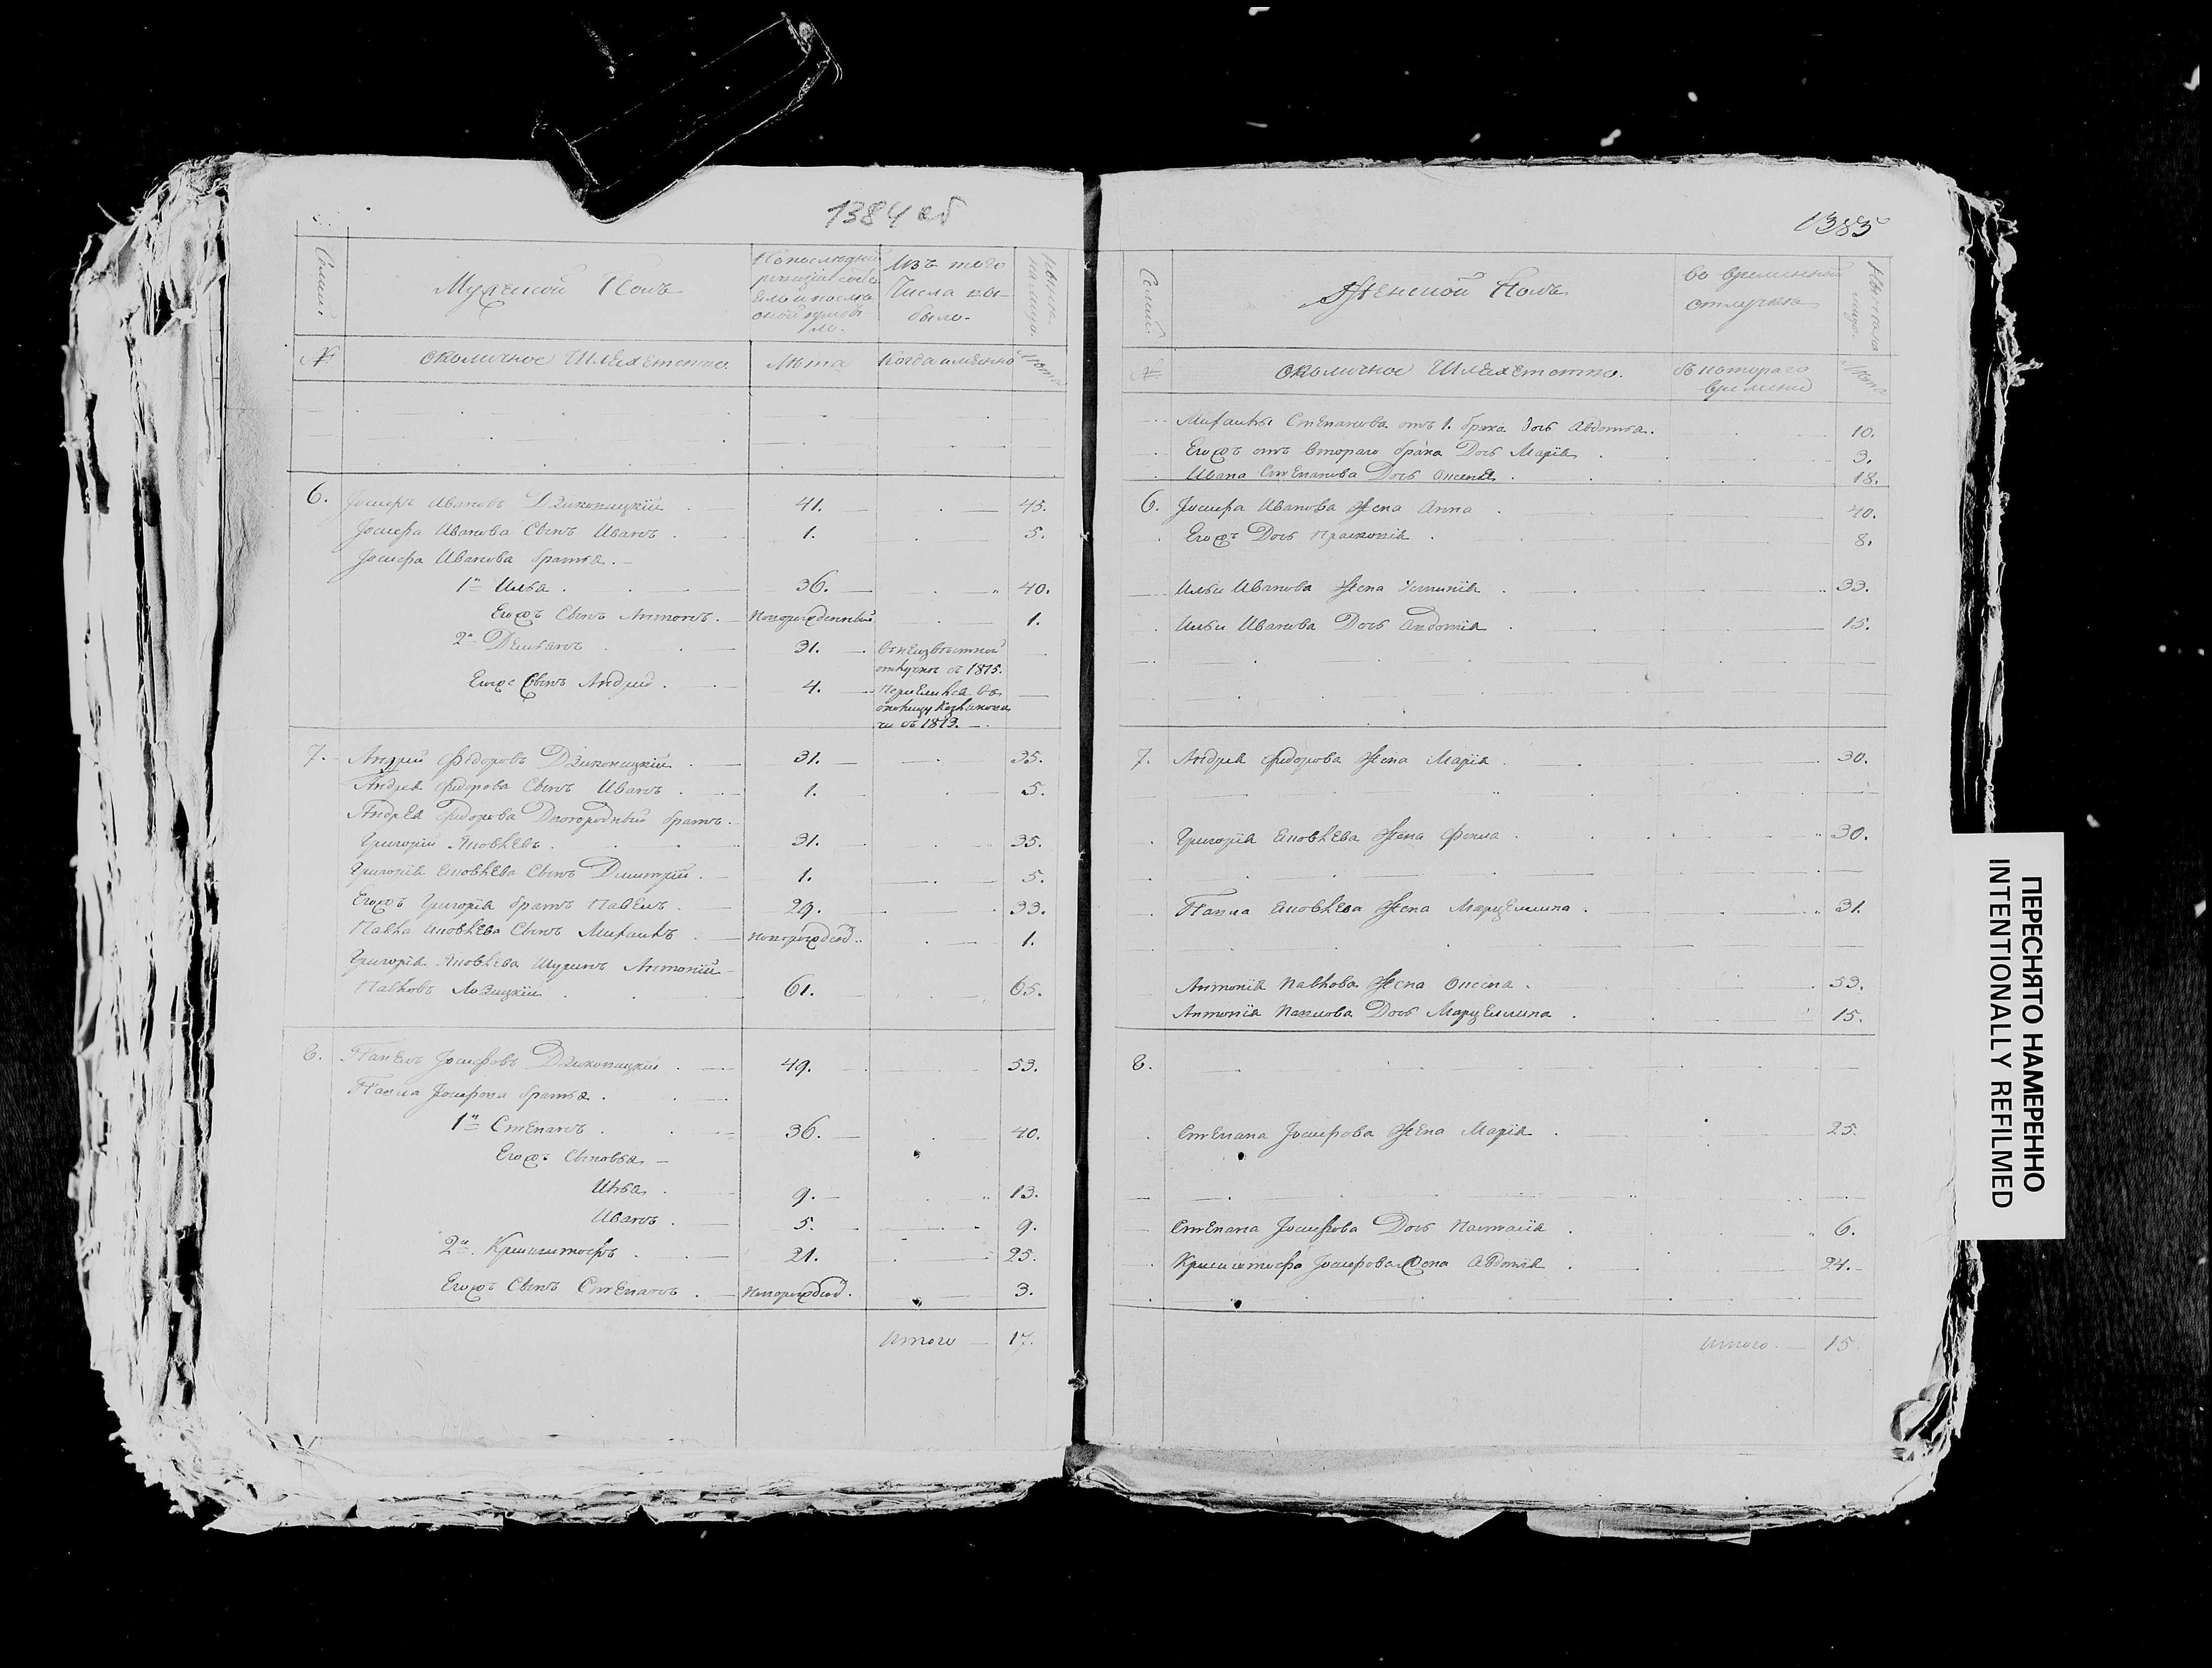 1384 об
Семьи.
Мужеской Полъ
По последней
ревизiи состо
яло и после
оной прибы
ло.
Изъ того
Числа вы-
было.
Ныне
на лицо.
№
околичное Шляхетство.
Лета
Когда именно
Лета
6. Iосифъ Ивановъ Дзиковицкiй 41. 45.
Iосифа Иванова Сынъ Иванъ 1. 5.
Iосифа Иванова братья.
1й Илья 36. 40.
Егожъ Сынъ Антонъ. Новорожденный 1.
2й Демьянъ 31. Въ неизвестной
отлучке съ 1815.
Егоже Сынъ Андрей 4. Переселился въ
околицу
съ 1813.
7. Андрей Федоровъ Дзиковицкiй 31. 35.
Андрея Федорова Сынъ Иванъ 1. 5.
Андрея Федорова Двоюродный братъ
Григорiй Яковлевъ 31. 35.
Григорiя Яковлева Сынъ Димитрiй 1. 5.
Егожъ Григорiя братъ Павелъ 29. 33.
Павла Яковлева Сынъ Михаилъ Новорожд. 1.
Григорiя Яковлева Шуринъ Антонiй
Павловъ Лозицкiй 61. 65.
8. Павелъ Iосифовъ Дзиковицкiй 49. 53.
Павла Iосифова братья.
1й Степанъ 36. 40.
Егожъ Сыновья
Илья 9. 13.
Иванъ 5. 9.
2й Криштофъ 21. 25.
Егожъ Сынъ Степанъ Новорожд. 3.
Итого 17.
1385
Семьи
Женской Полъ
Во временной
отлучке
Ныне на
лицо.
№
околичное Шляхетство.
Съ котораго
времени
Лета
Михайлы Степанова отъ 1. брака Дочь Авдотья. 10.
Егожъ отъ втораго брака Дочь Марiя 3.
Ивана Степанова Дочь Оксенiя 18.
6. Iосифа Иванова Жена Анна 40.
Егожъ Дочь Прасковiя 8.
Ильи Иванова Жена Устинiя 33.
Ильи Иванова Дочь Авдотiя 15.
7. Андрея Федорова Жена Марiя 30.
Григорiя Яковлева Жена Фекла 30.
Павла Яковлева Жена Марцеллина 31.
Антонiя Павлова Жена Оксена 53.
Антонiя Павлова Дочь Марцеллина 15.
8.
Степана Iосифова Жена Марiя 25.
Степана Iосифова Дочь Настасiя 6.
Криштофа Iосифова Жена Авдотiя 24.
Итого 15
ПЕРЕСНЯТО НАМЕРЕННО
INTENTIONALLY REFILMED